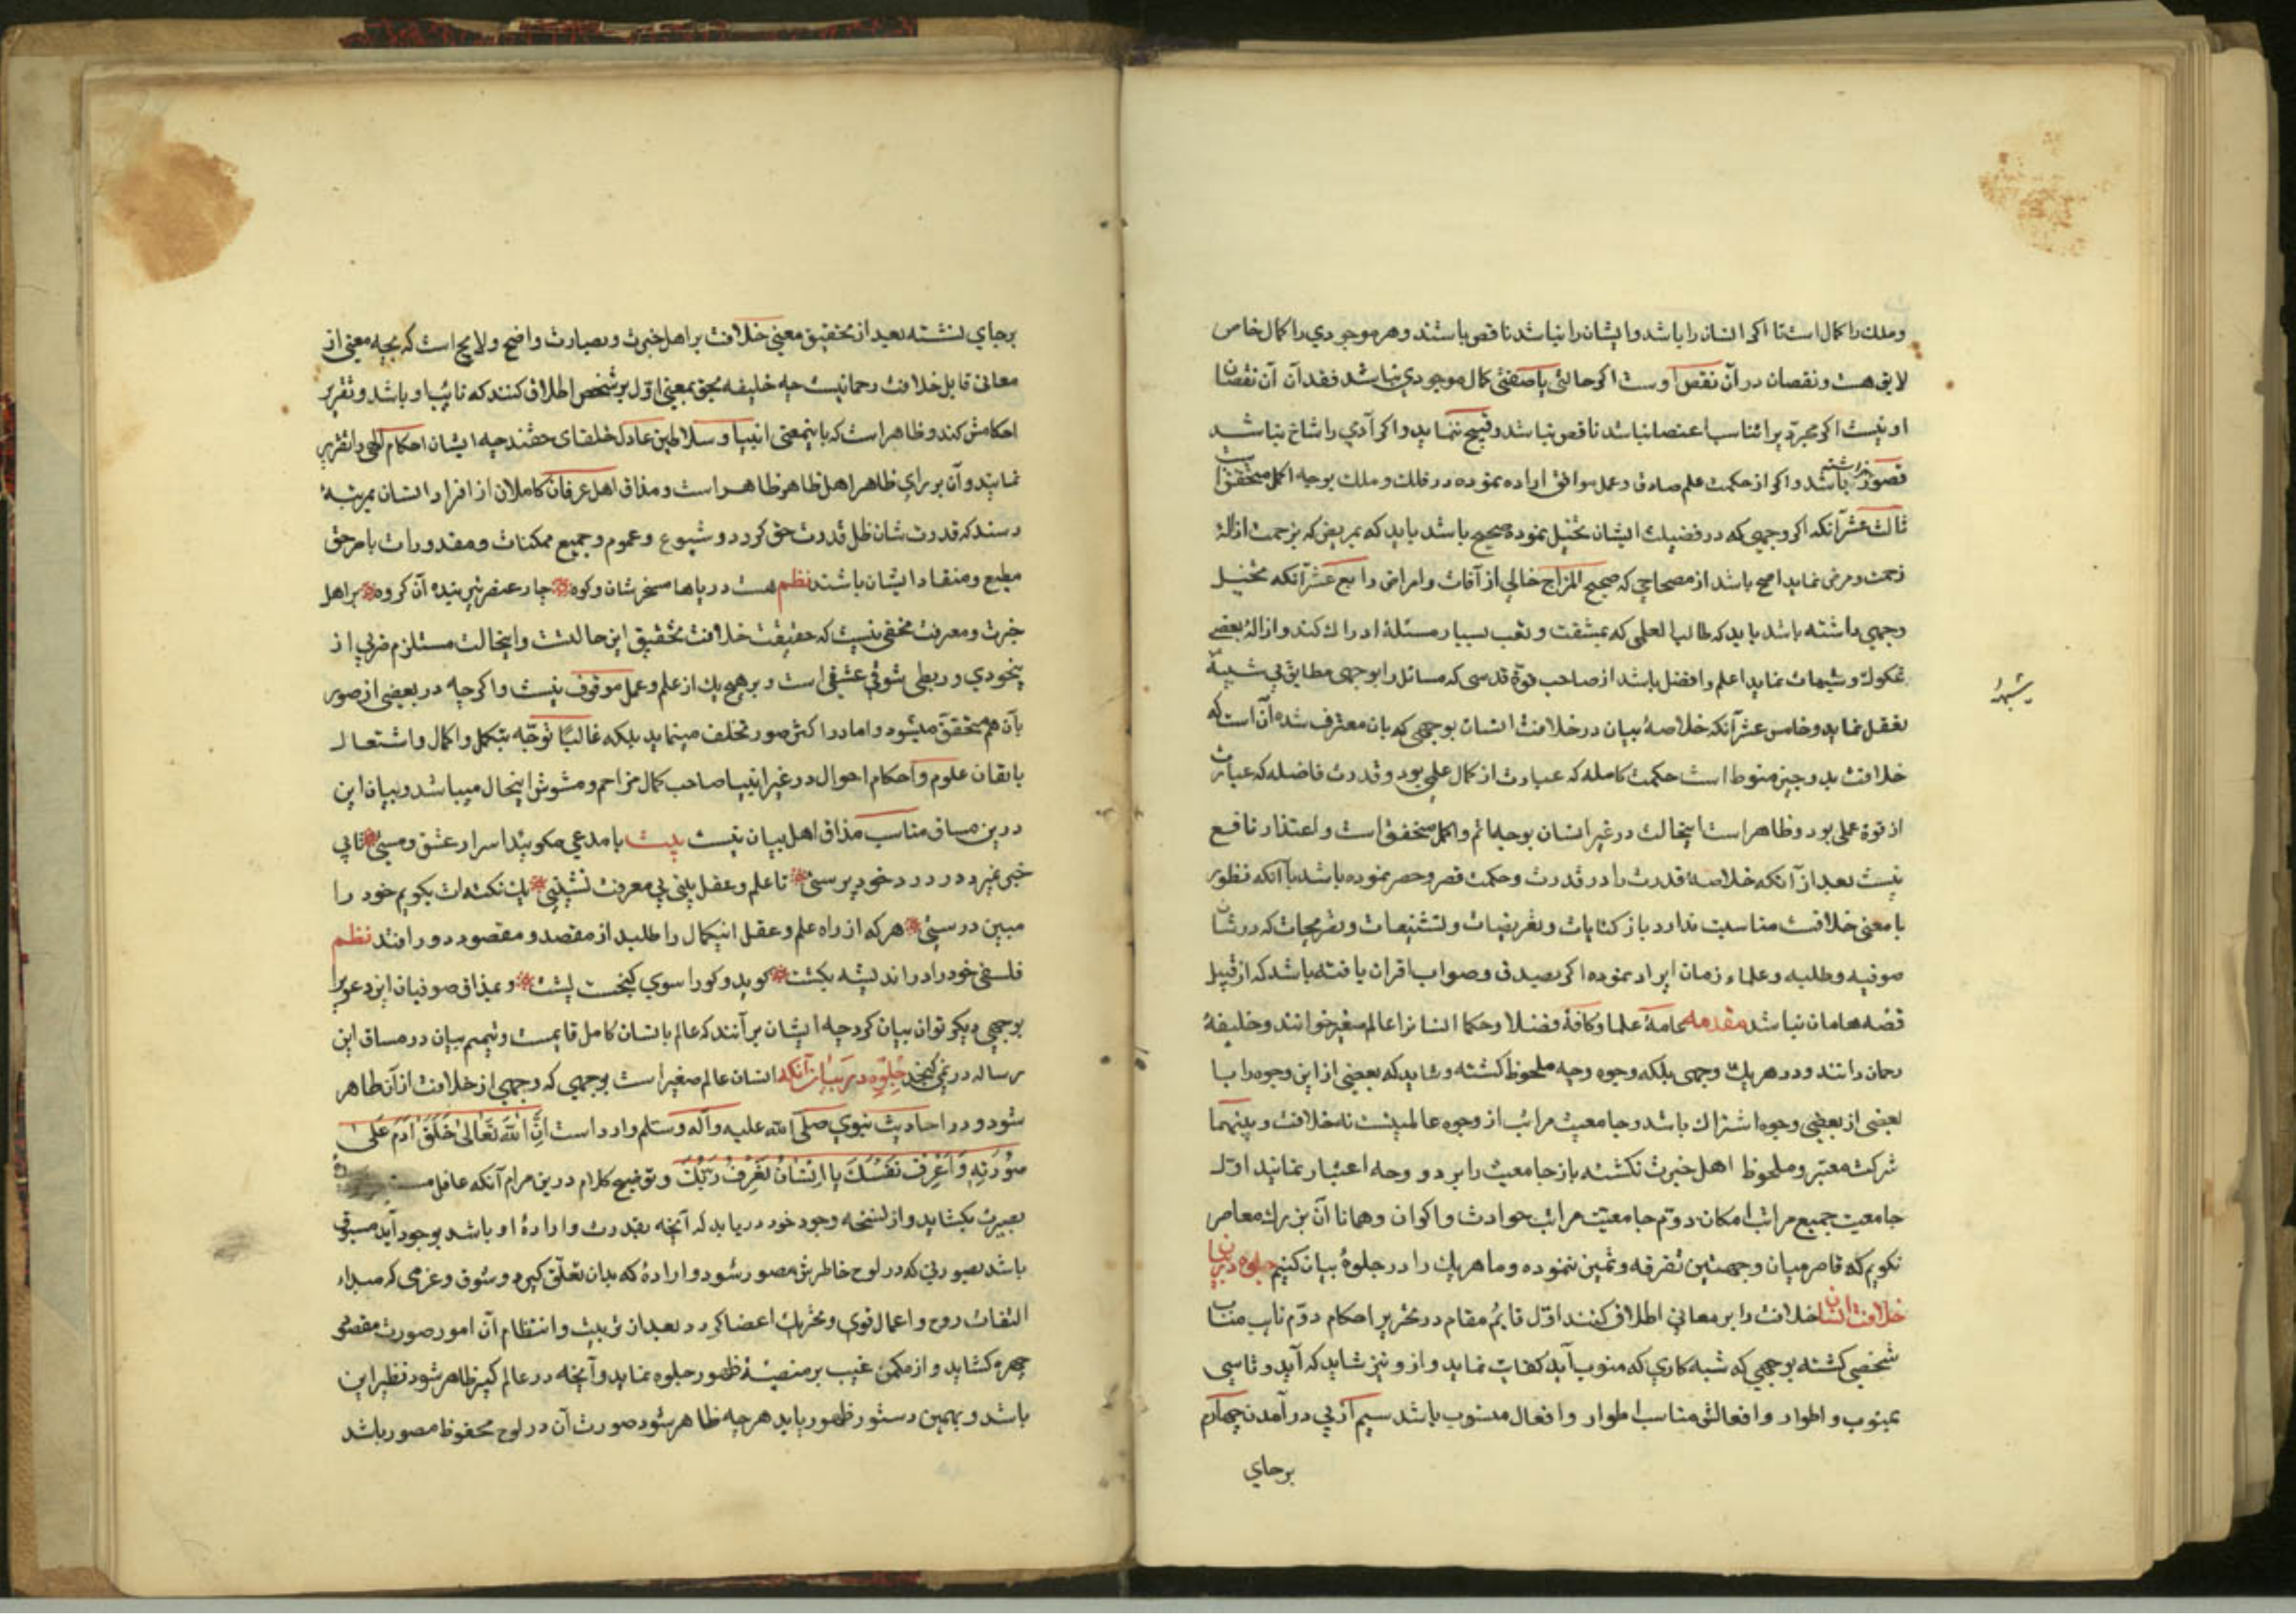 و ملک را کمال است تا اکر انسان را باشد و ایشان را نباشد ناقص باشند و هر موجودی را کمال خاص
لایق هست و نقصان در آن نقص اوست اکر حالتی یا صفتی کمال موجودی نباشد فقدان آن نقصان
او نیست اکر مجرد بر اتناسب اعضا نباشد ناقص نباشد و قبیح ننماید و اکر آدمی را شاخ نباشد
قصور نداشته باشد و اکر از حکمت علم صادق و عمل موافق اراده نموده در فلک و ملک بوجه اکمل متحقق است
ثالث عشر آنکه اکر وجهی که در فضیلت ایشان تخیل نموده صحیح باشد باید که مریض که بزحمت ازالهٔ
زحمت و مرض نماید اصح باشد از مصحاحی که صحیح المزاج خالی از آفات و امراض رابع عشر آنکه تخیل
وجهی داشته باشد باید که طالب العلمی که بمشقت و تعب بسیار مسئلهٔ ادراک کند و ازالهٔ بعضی
شکوک و شبهات نماید اعلم و افضل باشد از صاحب قوة قدسی که مسائل را بوجهی مطابق بی شبههٔ
تعقل نماید و خامس عشر آنکه خلاصهٔ بیان در خلافت انسان بوجهی که بان معترف شده آن است که
خلافت بدو چیز منوط است حکمت کامله که عبارت از کمال علمی بود و قدرت فاضله که عبارت
از قوة عملی بود و ظاهر است اینحالت در غیر انسان بوجه اتم و اکمل متحقق است و اعتذار نافع
نیست بعد از آنکه خلاصهٔ قدرت را در قدرت و حکمت قصر و حصر نموده باشد با آنکه فطور
با معنی خلافت مناسبت ندارد باز کنایات و تعریضات و تشنیعات و تقریحات که در شان
صوفیه و طلبه و علماء زمان ایراد نموده اکر بصدق و صواب اقران یافته باشد که از قبیل
قصه هامان نباشد مقدمه عامهٔ علما و کافهٔ فضلا و حکما انسانرا عالم صغیر خوانند و خلیفهٔ
رحمان دانند و در هر یک وجهی بلکه وجوه وجیه ملحوظ کشته و شاید که بعضی از این وجوه را با
بعضی از بعضی وجوه اشتراک باشد و جامعیت مراتب از وجوه عالمیتست نه خلافت و بینهما
شرکت معتبر و ملحوظ اهل خبرت نکشته باز جامعیت را بر دو وجه اعتبار نمایند اول
جامعیت جمیع مراتب امکان دوم جامعیت مراتب حوادث و اکوان و همانا آن بزرک معاصر
نکویم که قاصر میان وجهتین تفرقه و تمیز ننموده و ما هر یک را در جلوهٔ بیان کنیم جلوه در بیان
خلافت انسان خلافت را بر معانی اطلاق کنند اول قایم مقام در تحریر احکام دوم نایب مناب
شخصی کشته بوجهی که شبه کاری که منوب آید کفایت نماید و از و نیز شاید که آید و تاسی
بمنوب و اطوار و افعالش مناسب اطوار و افعال منسوب باشد سیم از پی در آمدن چهارم
برجای
بشبهه
برجای نشسته بعد از تحقیق معنی خلافت بر اهل خبرت و بصارت واضح و لایح است که بچه معنی از
معانی قابل خلافت رحمانیست چه خلیفه بحق بمعنی اول بر شخص اطلاق کنند که نائب او باشد و تقریر
احکامش کند و ظاهر است که باینمعنی انبیا و سلاطین عادل خلفای حقند چه ایشان احکام الهی را تقریر
نمایند و آن بر رای ظاهر اهل ظاهر ظاهر است و مذاق اهل عرفان کاملان از افراد انسان بمرتبهٔ
رسند که قدرت شان ظل قدرت حق کردد و شیوع و عموم و جمیع ممکنات و مقدورات بامر حق
مطیع و منقاد ایشان باشند نظم هست دریاها مسخر شان و کوه چار عنصر نیز بندهٔ آن کروه بر اهل
خبرت و معرفت مخفی نیست که حقیقت خلافت تحقیق این حالتست و اینحالت مستلزم ضربی از
بیخودی و ربطی شوقی عشقی است و بر هیچ یک از علم و عمل موقوف نیست و اکر چه در بعضی از صور
بآن هم متحقق میشود و اما در اکثر صور تخلف مینماید بلکه غالبًا توجه بتکمل و اکمال و اشتعال
باتقان علوم و احکام احوال در غیر انبیا صاحب کمال مزاحم و مشوش اینحال میباشد و بیان این
درین مساق مناسب مذاق اهل بیان نیست بیت با مدعی مکوئید اسرار عشق و مستی تا بی
خبر بمیرد در درد خود پرستی تا علم و عقل بینی بی معرفت نشینی یک نکته ات بکویم خود را
مبین و رستی هر که از راه علم و عقل اینکمال را طلبد از مقصد و مقصود دور افتد نظم
فلسفی خود را در اندیشه بکشت کو بدو کو را سوی کنجست پشت و بمذاق صوفیان ایزد عز
بوجهی دیکر توان بیان کرد چه ایشان بر آنند که عالم بانسان کامل قایمست و تتمیم بیان در مساق این
رساله در نمی کنجد جلوه در بیان آنکه انسان عالم صغیر است بوجهی که وجهی از خلافت از آن ظاهر
شود و در احادیث نبوی صلی الله علیه و آله و سلم وارد است ان الله تعالی خلق آدم علی
صورته و اعرف نفسک یا انسان تعرف ربک و توضیح کلام درین مرام آنکه عاقل
بصیرت بکشاید و از نسخه وجود خود دریابد که آنچه بقدرت و ارادهٔ او باشد بوجود آید مسبوق
باشد بصورتی که در لوح خاطرش مصور شود و ارادهٔ که بدان تعلق کیرد و شوق و عزمی که مبداء
التفات روح و اعمال قوی و تحریک اعضا کردد بعد از ترتیب و انتظام آن امور صورت مقصود
چهره کشاید و از مکمن غیب بر منصهٔ ظهور جلوه نماید و آنچه در عالم کبیر ظاهر شود نظیر این
باشد و بهمین دستور ظهور یابد هر چه ظاهر شود صورت آن در لوح محفوظ مصور باشد